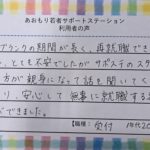 あおもり若者サポートステーション
利用者の声
ブランクの期間が長く、再就職でき
、とても不安でしたが サポステの
方が親身になって話を聞いてく
り、安心して無事に就職する
ができました。
【職種：受付 年代20